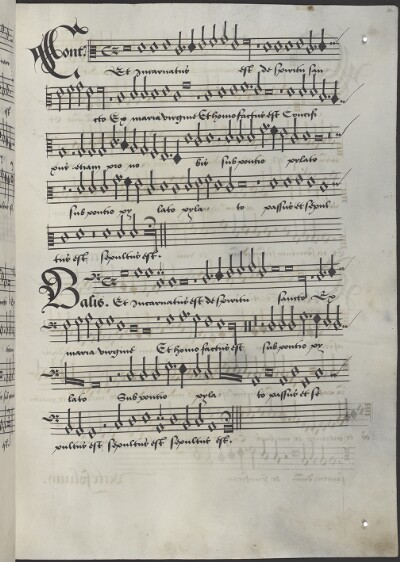 Cont:
Et Incarnatus est de spiritu san
cto Ex maria virgine Et homo factus est Crucifi
xus etiam pro no bis sub pontio pylato
sub pontio py lato pyla to passus et sepul
tus est sepultus est.
Basis. Et Incarnatus est de spiritu sancto Ex
maria virgine Et homo factus est sub pontio py
lato Sub pontio pyla to passus et se
pultus est sepultus est sepultus est.